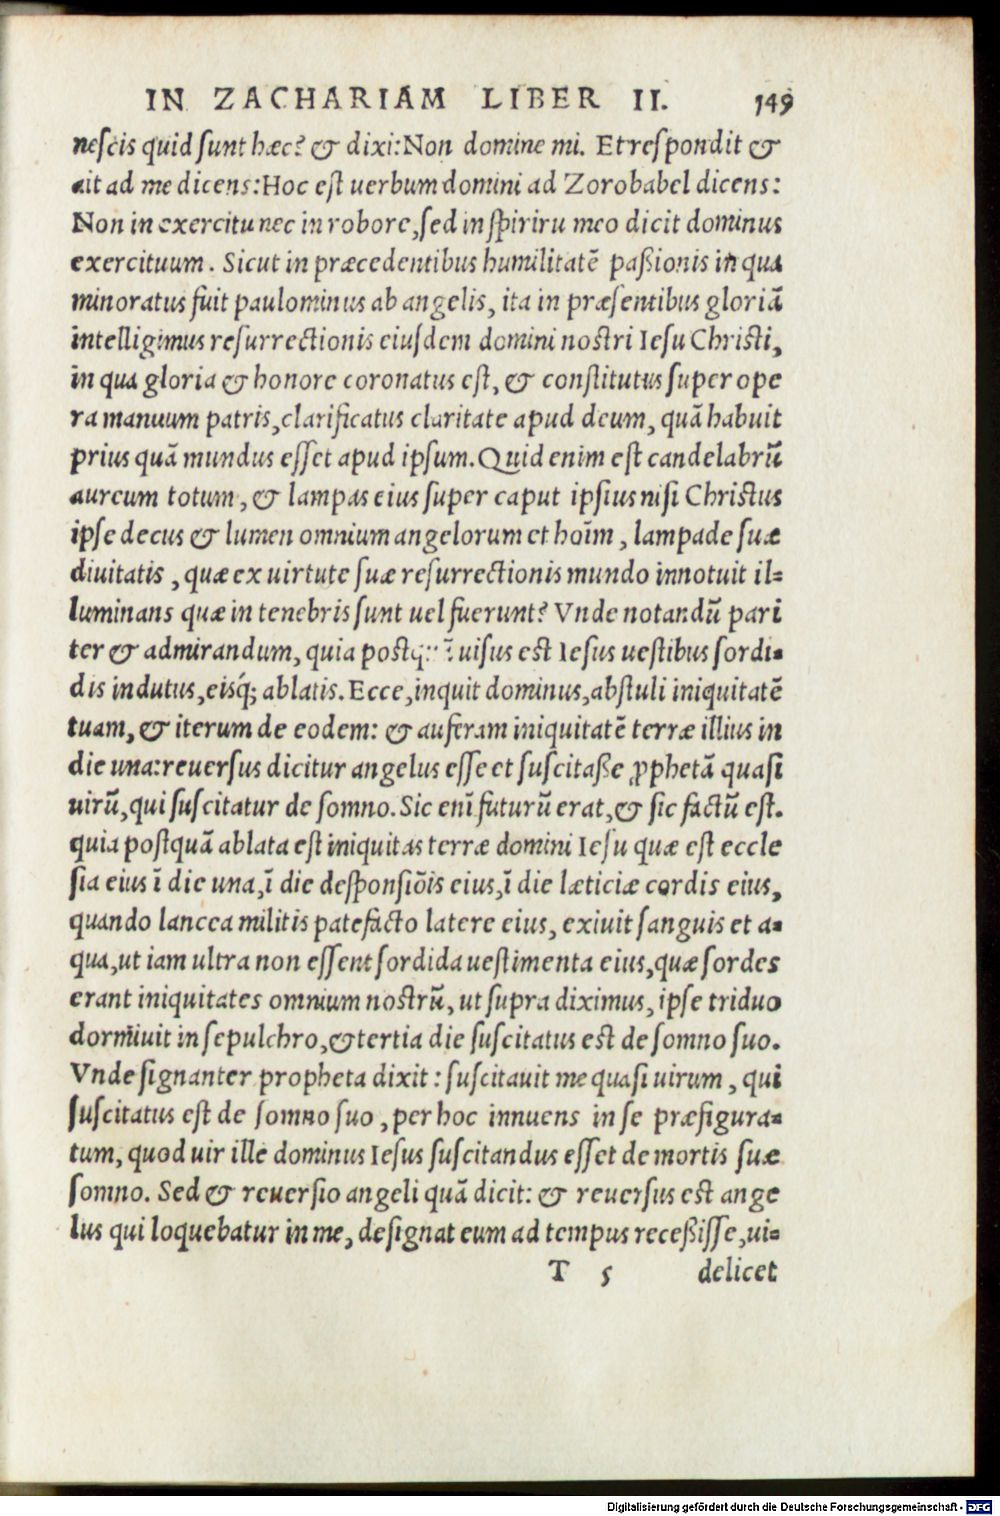 IN ZACHARIAM LIBER II. 149
nescis quid sunt hæc? & dixi: Non domine mi. Et respondit &
ait ad me dicens: Hoc est uerbum domini ad Zorobabel dicens:
Non in exercitu nec in robore, sed in spiriru meo dicit dominus
exercituum. Sicut in præcedentibus humilitatē paßionis in qua
minoratus fuit paulominus ab angelis, ita in præsentibus gloriā
intelligimus resurrectionis eiusdem domini nostri Iesu Christi,
in qua gloria & honore coronatus est, & constitutus super ope
ra manuum patris, clarificatus claritate apud deum, quā habuit
prius quā mundus esset apud ipsum. Quid enim est candelabrū
aureum totum, & lampas eius super caput ipsius nisi Christus
ipse decus & lumen omnium angelorum et hoīm, lampade suæ
diuitatis, quæ ex uirtute suæ resurrectionis mundo innotuit il=
luminans quæ in tenebris sunt uel fuerunt? Vnde notandū pari
ter & admirandum, quia uisus est Iesus uestibus sordi=
dis indutus, eisq́; ablatis. Ecce, inquit dominus, abstuli iniquitatē
tuam, & iterum de eodem: & auferam iniquitatē terræ illius in
die una: reuersus dicitur angelus esse et suscitaße ꝓphetā quasi
uirū, qui suscitatur de somno. Sic enī futurū erat, & sic factū est.
quia postquā ablata est iniquitas terræ domini Iesu quæ est eccle
sia eius ī die una, ī die desponsiōis eius, ī die læticiæ cordis eius,
quando lancea militis patefacto latere eius, exiuit sanguis et a=
qua, ut iam ultra non essent sordida uestimenta eius, quæ sordes
erant iniquitates omnium nostrū, ut supra diximus, ipse triduo
dormiuit in sepulchro, & tertia die suscitatus est de somno suo.
Vnde signanter propheta dixit: suscitauit me quasi uirum, qui
suscitatus est de somno suo, per hoc innuens in se præfigura=
tum, quod uir ille dominus Iesus suscitandus esset de mortis suæ
somno. Sed & reuersio angeli quā dicit: & reuersus est ange
lus qui loquebatur in me, designat eum ad tempus receßisse, ui=
T 5 delicet
Digitalisierung gefördert durch die Deutsche Forschungsgemeinschaft - DFG